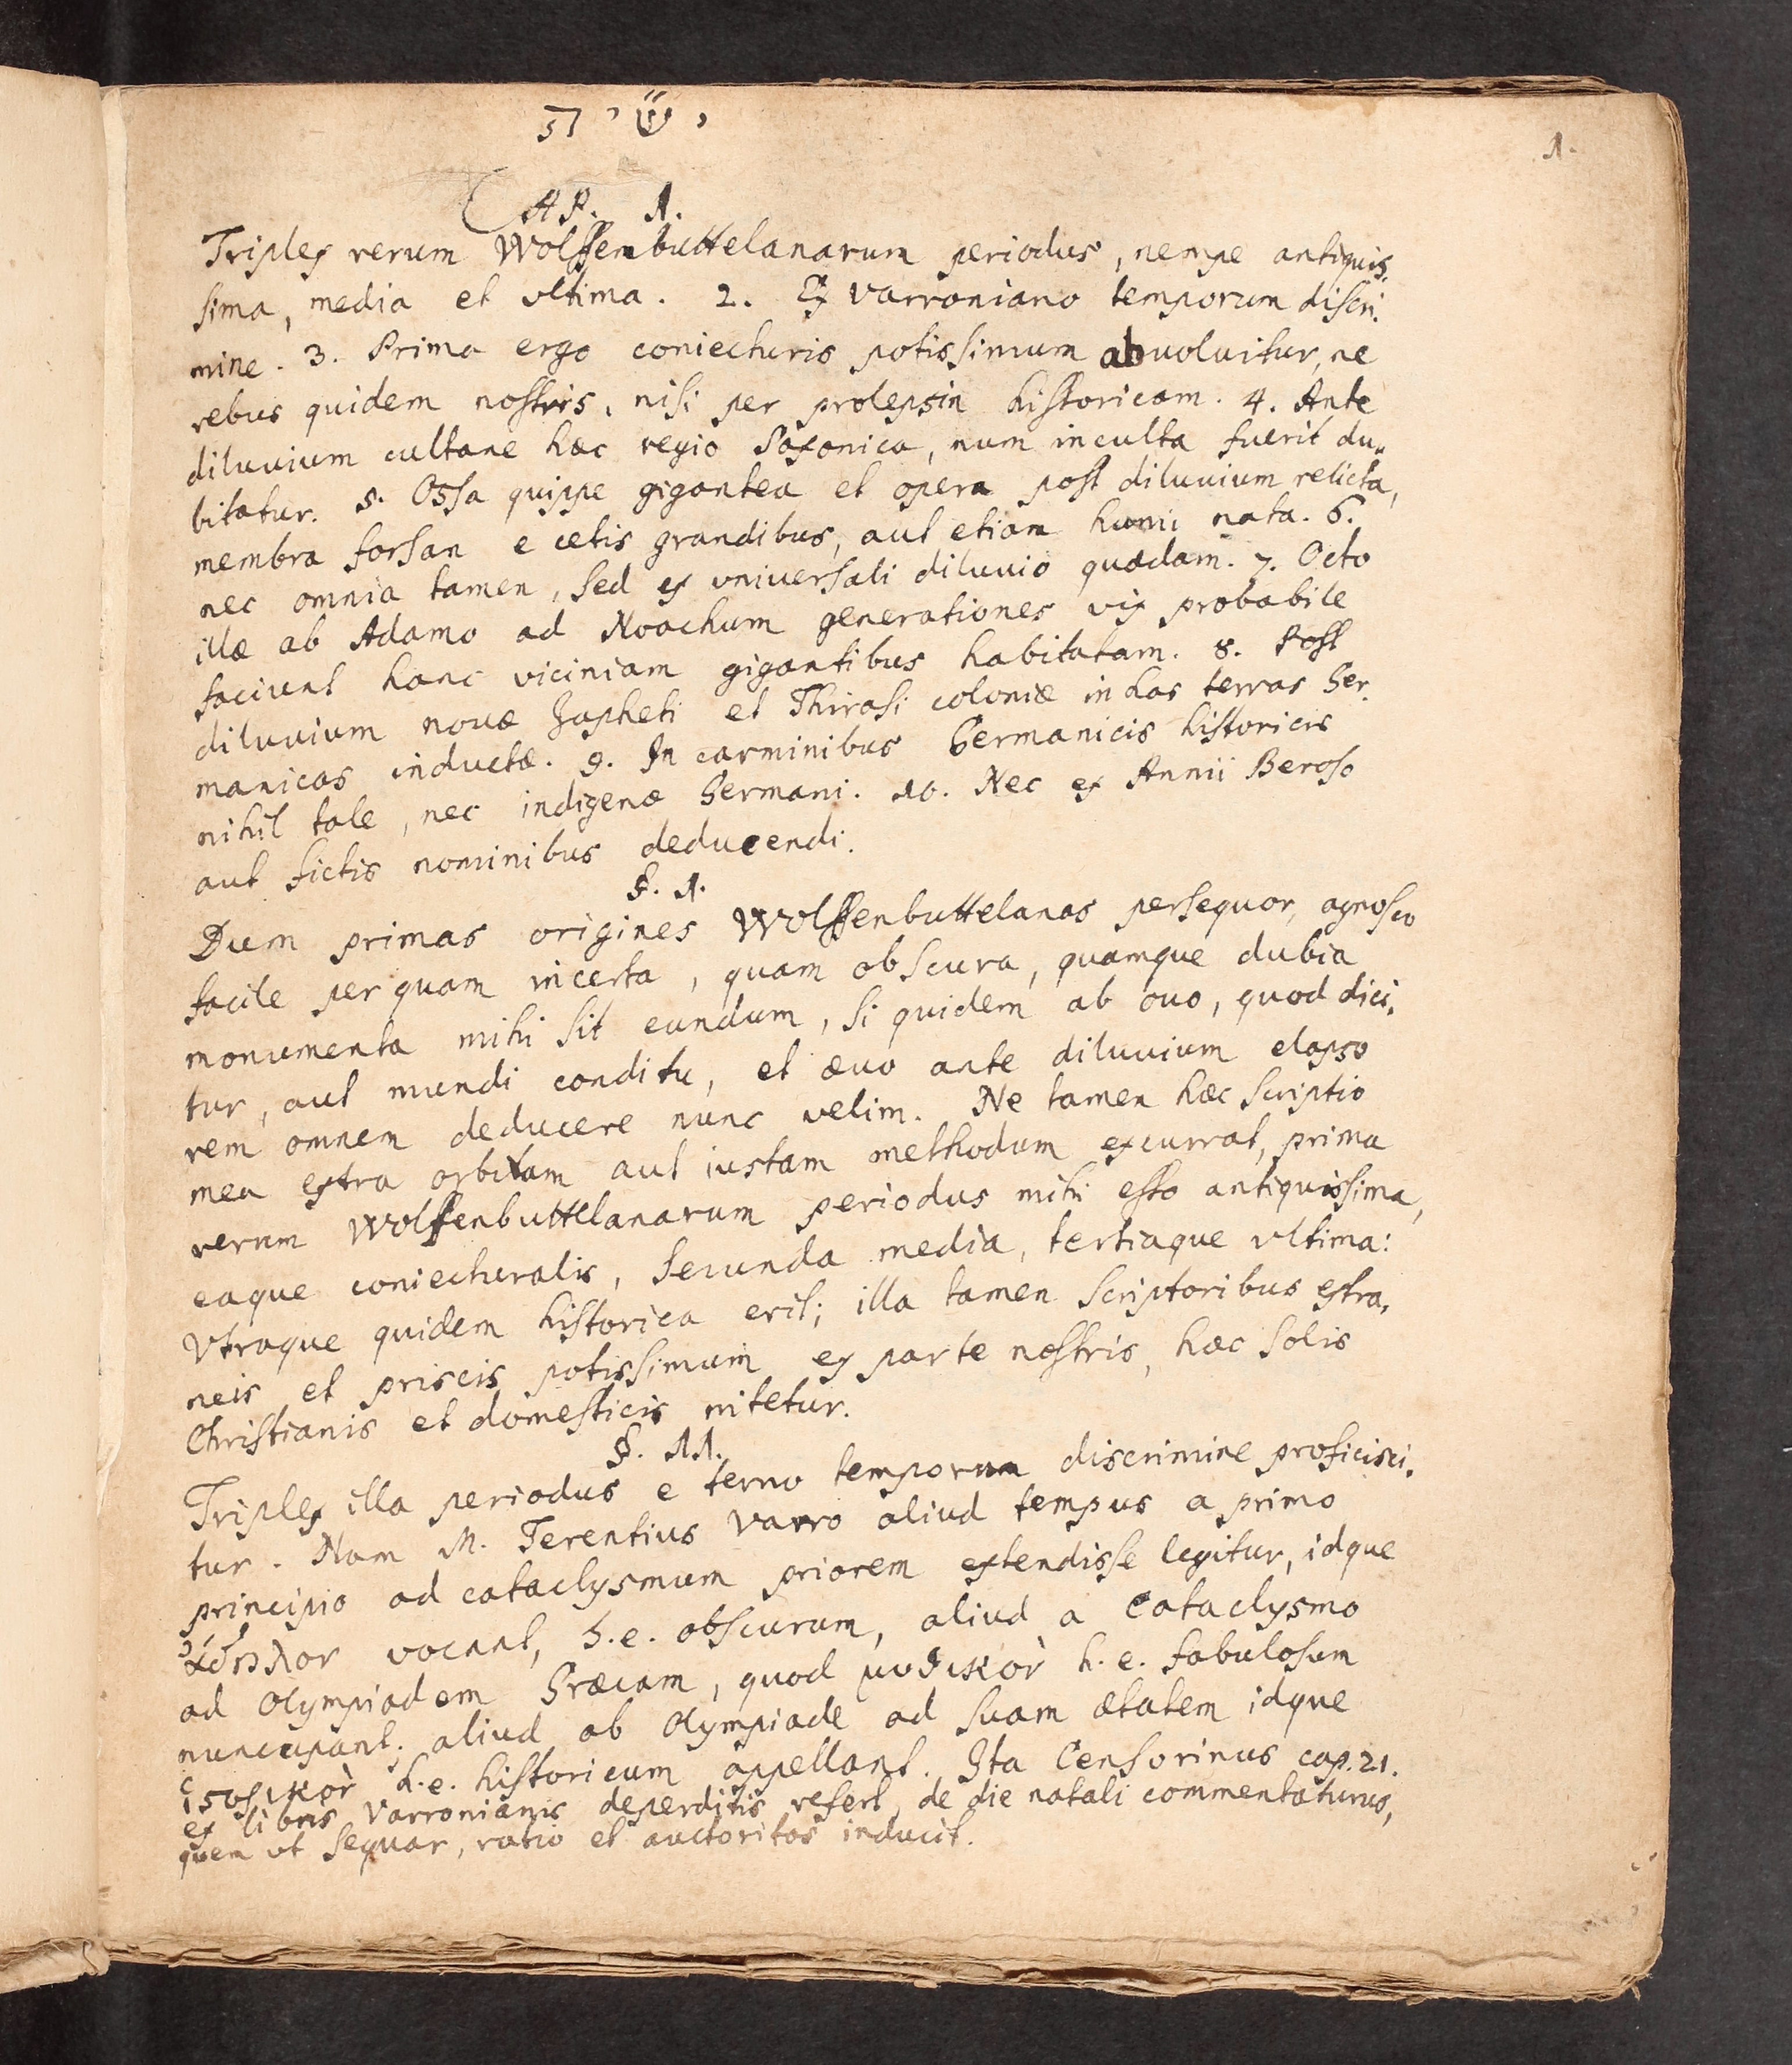 1.
CAP. 1.
Triplex rerum Wolffenbuttelanarum periodus, nempe antiquis-
sima, media et vltima. 2. Ex Varroniano temporum discri-
mine. 3. Prima ergo coniecturis potissimum absoluitur, ne
rebus quidem nostris, nisi per prolepsin historicam. 4. Ante
diluuium cultane hæc regio Saxonica, num inculta fuerit du-
bitatur. 5. Ossa quippe gigantea et opera post diluuium relicta,
membra forsan e cetis grandibus, aut etiam humi nata. 6.
nec omnia tamen, sed ex vniuersali diluuio quædam. 7. Octo
illæ ab Adamo ad Noachum generationes vix probabile
faciunt hanc viciniam gigantibus habitatam. 8. Post
diluuium nouæ Japheti et Thirasi coloniæ in has terras Ger-
manicas inductæ. 9. In carminibus Germanicis historicis
nihil tale, nec indigenæ Germani. 10. Nec ex Annii Beroso
aut fictis nominibus deducendi.
§. 1.
Dum primas origines Wolffenbuttelanas persequor, agnosco
facile per quam incerta, quam obscura, quamque dubia
monumenta mihi sit eundum, si quidem ab ouo, quod dici-
tur, aut mundi conditu, et æuo ante diluuium elapso
rem omnem deducere nunc velim. Ne tamen hæc scriptio
mea extra orbitam aut iustam methodum excurrat, prima
rerum Wolffenbuttelanarum periodus mihi esto antiquissima,
eaque coniecturalis, secunda media, tertiaque vltima:
Vtraque quidem historica erit; illa tamen scriptoribus extra-
neis et priscis potissimum ex parte nostris, hæc solis
Christianis et domesticis nitetur.
§. 11.
Triplex illa periodus e terno temporum discrimine proficisci-
tur. Nam M. Terentius Varro aliud tempus a primo
principio ad cataclysmum priorem extendisse legitur, idque
ἄδηλον vocant, h.e. obscurum, aliud a cataclysmo
ad Olympiadem Græcam, quod μυθικὸν h.e. fabulosum
nuncupant; aliud ab Olympiade ad suam ætatem idque
ἱστορικὸν h.e. historicum appellant. Ita Censorinus cap. 21.
ex libris Varronianis deperditis refert, de die natali commentaturus,
quem vt sequar, ratio et auctoritas inducit.